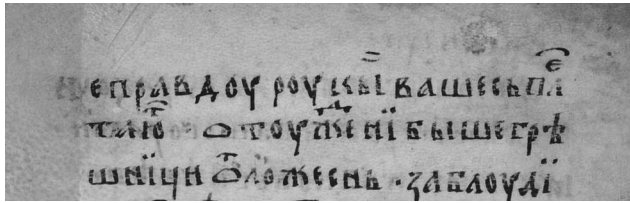 неправдоу роукы вашесьплⷷ
таюⷮ · ѡтоуⷣженї бышегрѣ
шнїци ѿложеснь · заблоудї